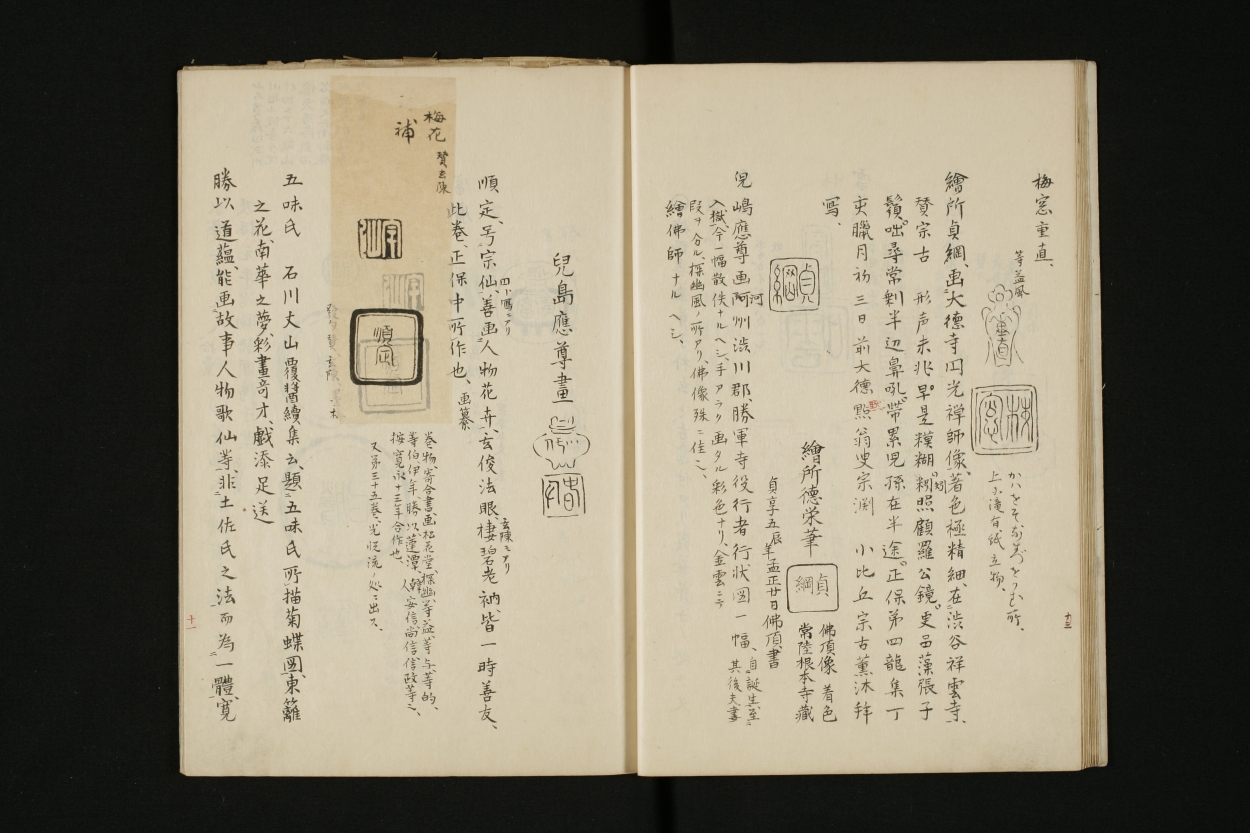 梅窓重直、
等益風
重直
梅窓
上ニ滝有紙立物、
繪所貞綱、画大徳寺円光禅師像、著色極精細、在渋谷祥雲寺、
賛宗古 形声未兆早是糢糊、糊照顧羅公鏡。更品藻張子
鬚。咄尋常剰半辺鼻吼。帯累児孫在半途。正保第四龍集丁
亥臘月初三日前大徳點翁叟宗渕 小比丘宗古薫沐拜
寫、
貞綱
繪所德栄筆
貞綱
佛頂像 着色
常陸根本寺藏
貞享五辰年孟正廿日佛頂書
児嶋應尊画阿州渋川郡、勝軍寺役行者行状図一幅、自誕生至
河
入獄、今一幅散佚ナルヘシ、手アラク画タル彩色ナリ、金雲ニテ
其後夫書
段ヲ分ル、探幽風ノ所アリ、佛像殊ニ佳ニ、
繪佛師ナルヘシ、
十三
兒島應尊畫
順定、号宗仙、善画人物花卉、玄俊法眼棲碧老衲、皆一時善友、
四ニ写ニアリ
玄陳ニアリ
此巻、正保中所作也、画纂
巻物、寄合書画、松花堂、探幽、等益、等与、等的、
等伯伊年、勝以、蓮潭、韓人安信尚信、信政等ニ、
按寛永十三年合作也、
又第三十五巻、光悦流ノ処ニ出ス、
梅花
賛玄陳
補
宗仙
順定
五味氏 石川丈山覆醬續集云、題五味氏所描菊蝶図、東籬
之花、南華之夢、彩畫奇才、戯添足送
勝以 道蘊、能画故事人物歌仙等、非土佐氏之法而為一體、寛
十一